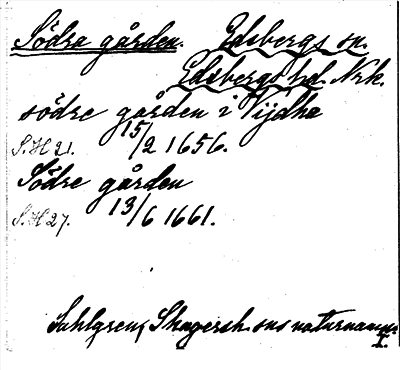 Södra gården. Edsbergs sn.
Edsbergs hd. Nrk.
södre gården i Vijdha
S.H 21. 15/2 1656.
Södre gården
S.H 27. 13/6 1661.
Sahlgren, Skagersh. sns naturnamn
I.